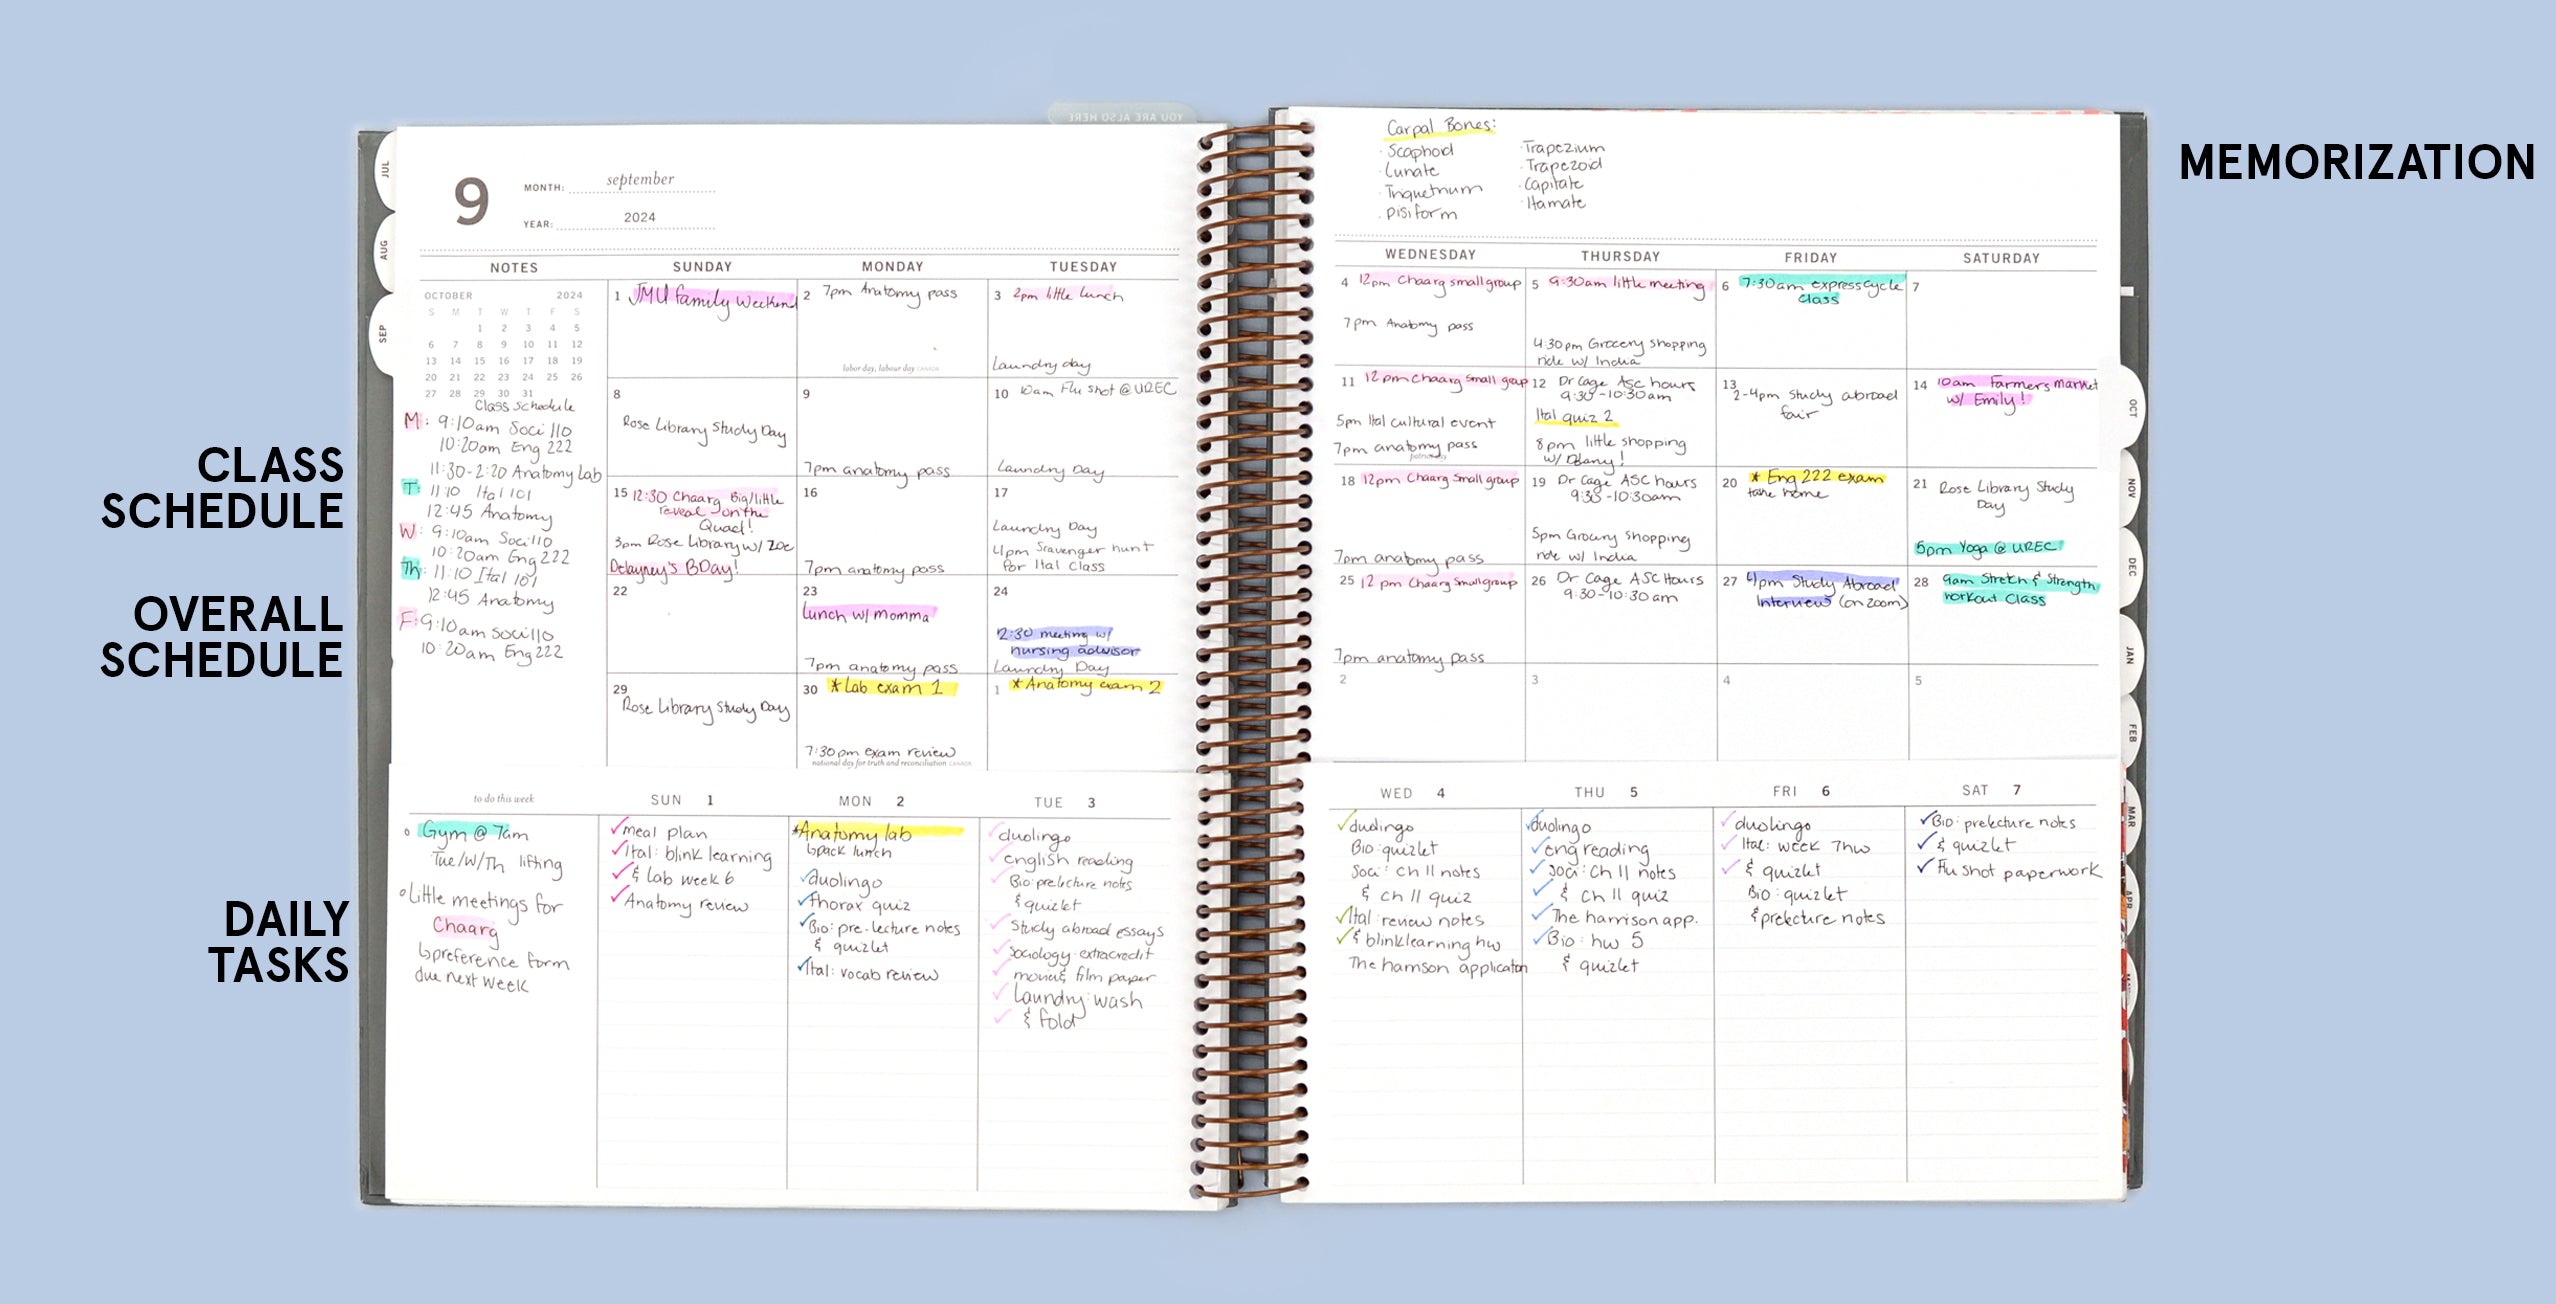 YOU ARE ALSO HERE
CLASS
SCHEDULE
OVERALL
SCHEDULE
DAILY
TASKS
MEMORIZATION
JUL
AUG
SEP
9
MONTH: september
YEAR: 2024
NOTES
SUNDAY
MONDAY
TUESDAY
OCTOBER 2024
S M T W T F S
1 2 3 4 5
6 7 8 9 10 11 12
13 14 15 16 17 18 19
20 21 22 23 24 25 26
27 28 29 30 31
Class Schedule
M: 9:10am Soci 110
10:20am Eng 222
11:30-2:20 Anatomy Lab
T: 11:10 Ital 101
12:45 Anatomy
W: 9:10am Soci 110
10:20am Eng 222
Th: 11:10 Ital 101
12:45 Anatomy
F: 9:10am Soci 110
10:20am Eng 222
1 JMU family weekend
2 7pm Anatomy pass
labor day, labour day CANADA
3 2pm little lunch
Laundry day
8
Rose Library Study Day
9
7pm anatomy pass
10 10am Flu shot @ UREC
Laundry Day
15 12:30 Chaarg Big/little
reveal on the
Quad!
3pm Rose Library w/ Zoe
Delayney's BDay!
16
7pm anatomy pass
17
Laundry Day
4pm Scavenger hunt
for Ital class
22
23
Lunch w/ Momma
7pm anatomy pass
24
12:30 meeting w/
nursing advisor
Laundry Day
29
Rose Library Study Day
30 *Lab exam 1
7:30pm exam review
national day for truth and reconciliation CANADA
1 *Anatomy exam 2
Carpal Bones:
· Scaphoid
· Lunate
· Triquetrum
· pisiform
· Trapezium
· Trapezoid
· Capitate
· Hamate
WEDNESDAY
THURSDAY
FRIDAY
SATURDAY
4 12pm Chaarg small group
7pm Anatomy pass
5 9:30am little meeting
4:30pm Grocery shopping
ride w/ India
6 7:30am express cycle
class
7
11 12pm Chaarg small group
5pm Ital cultural event
7pm anatomy pass
12 Dr Cage ASC hours
9:30-10:30am
Ital quiz 2
8pm little shopping
w/
13
2-4pm study abroad
fair
14 10am Farmers Market
w/ Emily!
18 12pm Chaarg small group
7pm anatomy pass
19 Dr Cage ASC hours
9:30-10:30am
5pm Grocery shopping
ride w/ India
20 * Eng 222 exam
take home
21 Rose Library Study
Day
5pm Yoga @ UREC
25 12pm Chaarg small group
7pm anatomy pass
26 Dr Cage ASC Hours
9:30-10:30am
27 4pm Study Abroad
Interview (on zoom)
28 9am Stretch & Strength
workout class
2
3
4
5
OCT
NOV
DEC
JAN
FEB
MAR
APR
to do this week
SUN 1
MON 2
TUE 3
Gym @ 7am
Tue/W/Th lifting
Little meetings for
Chaarg
preference form
due next week
meal plan
Ital: blink learning
& lab week 6
Anatomy review
*Anatomy lab
pack lunch
duolingo
Thorax quiz
Bio: pre-lecture notes
& quizlet
Ital: vocab review
duolingo
english reading
Bio: prelecture notes
& quizlet
Study abroad essays
Sociology extra credit
movie & film paper
Laundry: wash
& fold
WED 4
THU 5
FRI 6
SAT 7
duolingo
Bio: quizlet
Soci: ch 11 notes
& ch 11 quiz
Ital: review notes
& blinklearning hw
The harrison application
duolingo
eng reading
Soci: Ch 11 notes
& ch 11 quiz
The harrison app.
Bio: hw 5
& quizlet
duolingo
Ital: week 7 hw
& quizlet
Bio: quizlet
& prelecture notes
Bio: prelecture notes
& quizlet
Flu shot paperwork